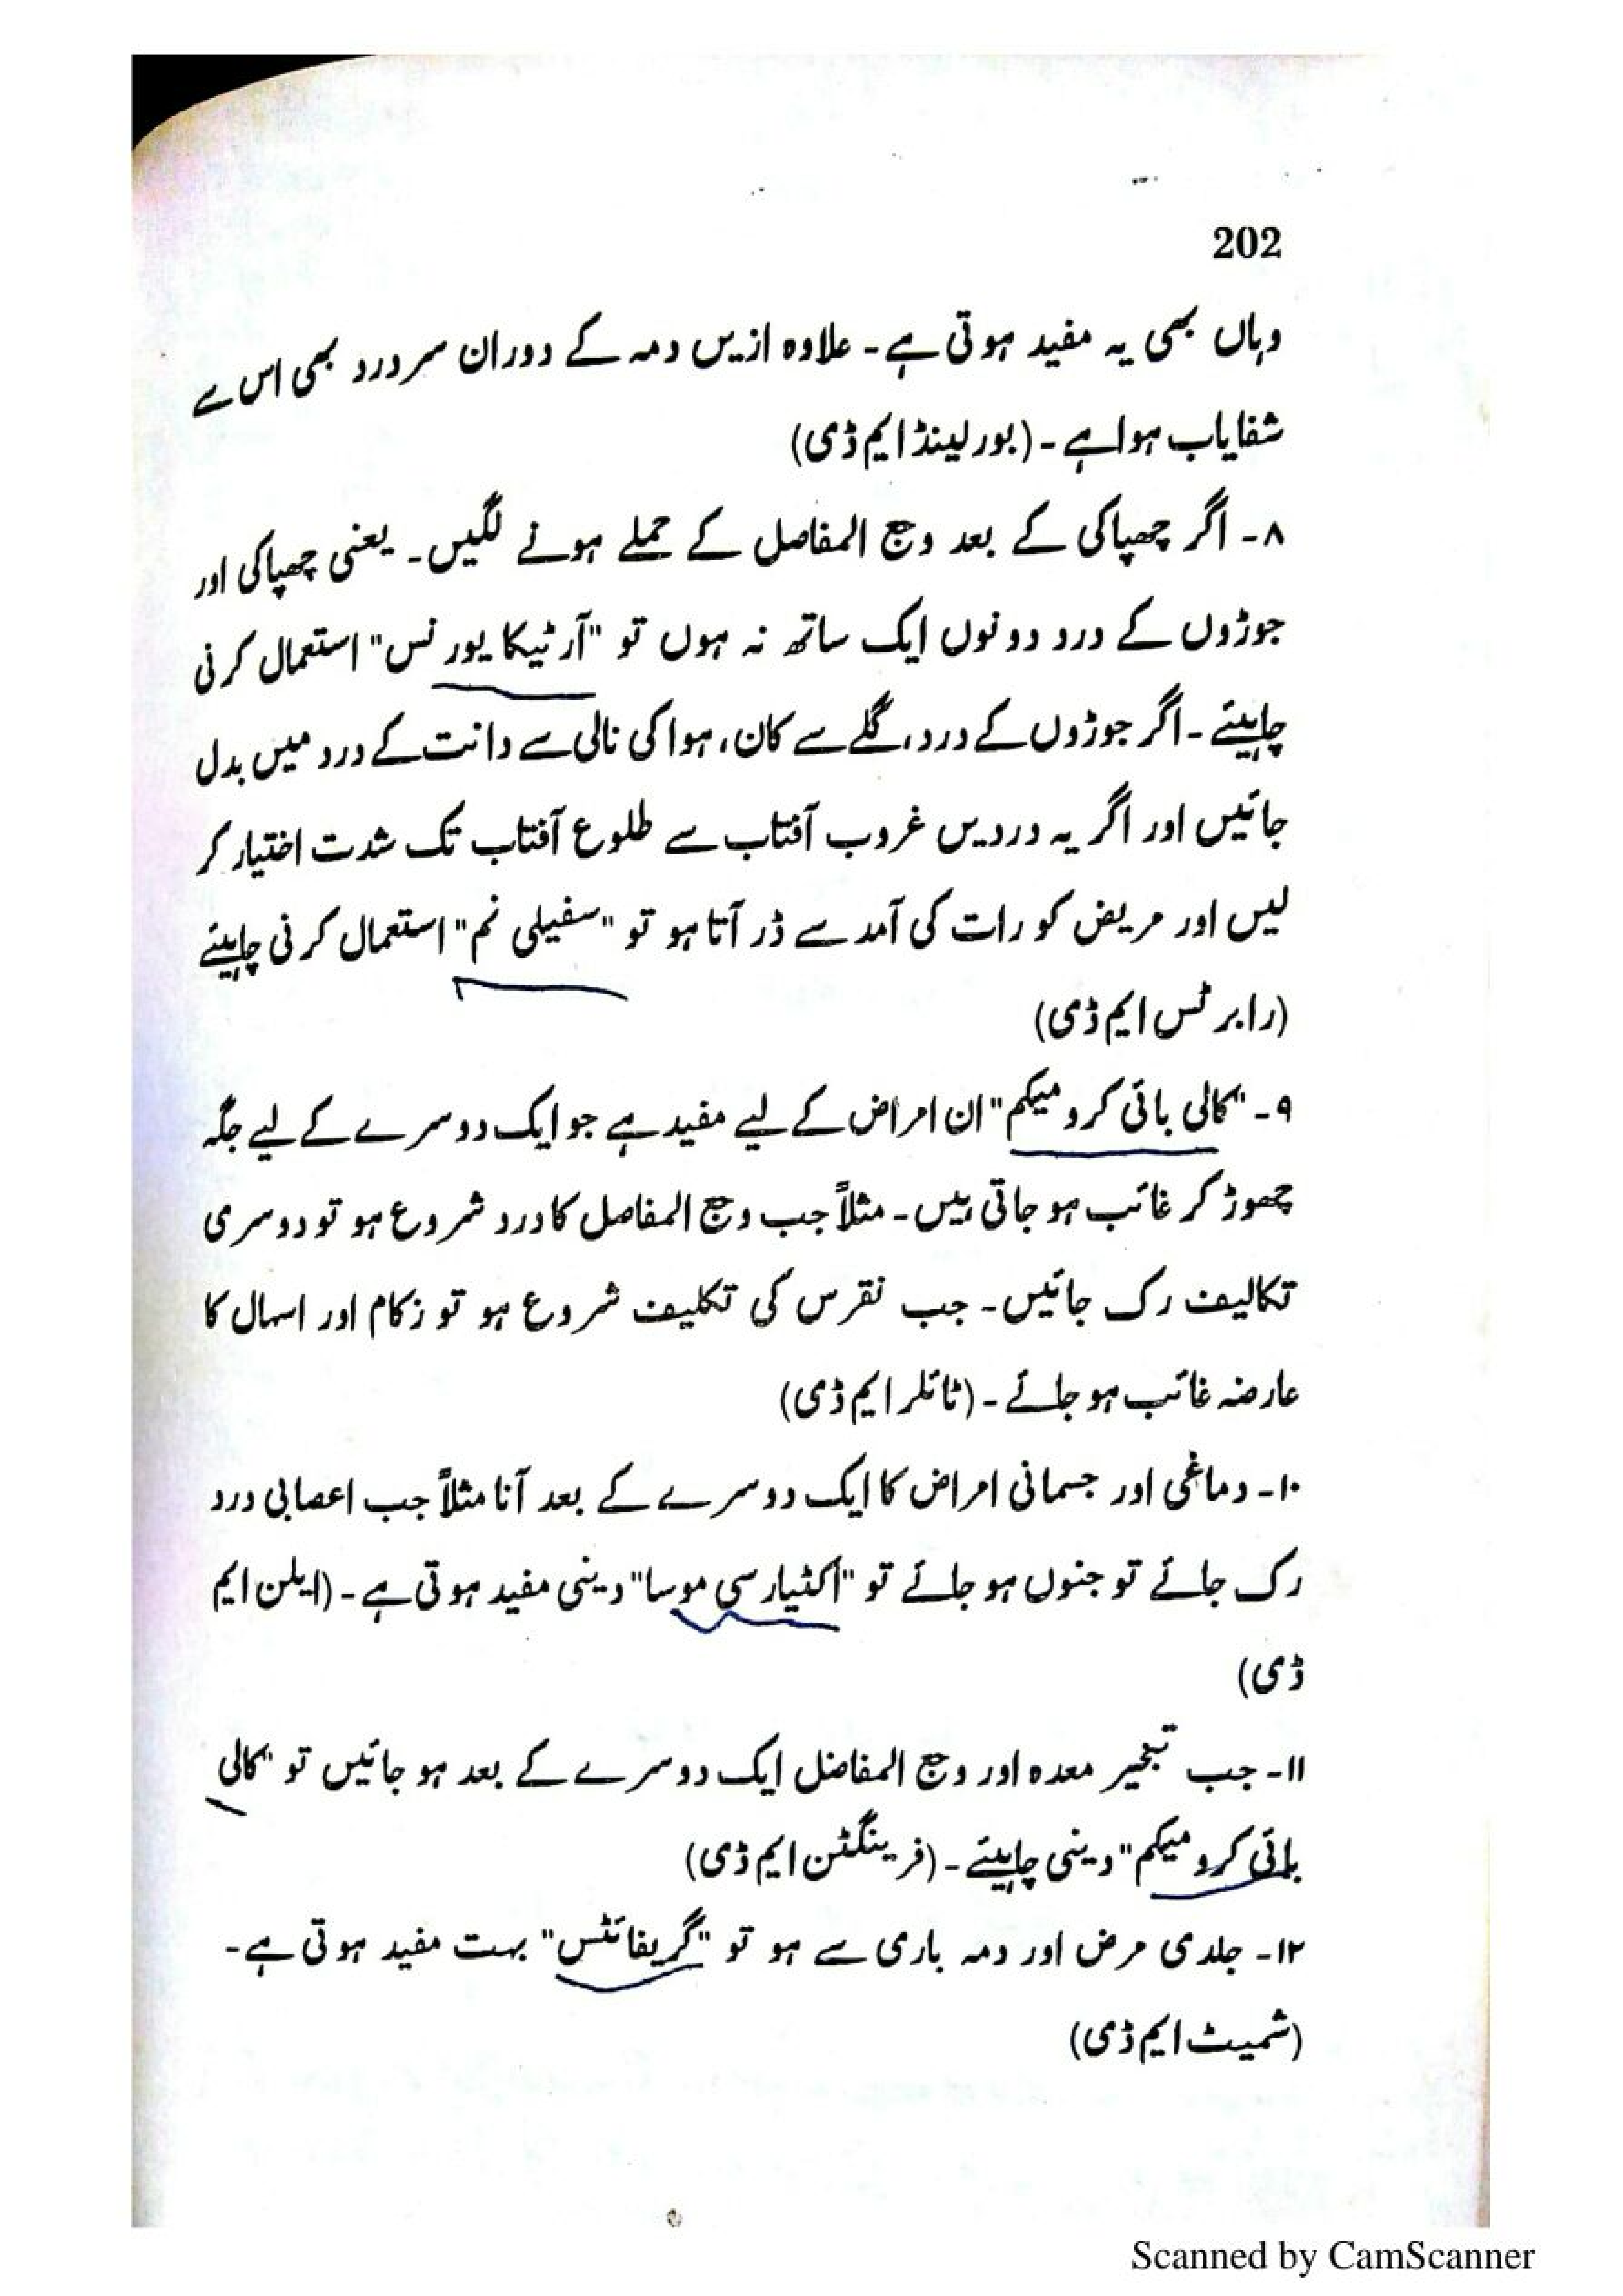 202
وہاں بھی یہ مفید ہوتی ہے۔ علاوہ ازیں دمہ کے دوران سردرد بھی اس سے
شفایاب ہوا ہے۔ (بورلینڈ ایم ڈی)
۸۔ اگر چھپاکی کے بعد وجع المفاصل کے حملے ہونے لگیں۔ یعنی چھپاکی اور
جوڑوں کے درد دونوں ایک ساتھ نہ ہوں تو "آرٹیکا یورنس" استعمال کرنی
چاہیئے۔ اگر جوڑوں کے درد، گلے سے کان، ہوا کی نالی سے دانت کے درد میں بدل
جائیں اور اگر یہ دردیں غروب آفتاب سے طلوع آفتاب تک شدت اختیار کر
لیں اور مریض کو رات کی آمد سے ڈر آتا ہو تو "سفیلی نم" استعمال کرنی چاہیئے
(رابرٹس ایم ڈی)
۹۔ "کالی بائی کرومیکم" ان امراض کے لیے مفید ہے جو ایک دوسرے کے لیے جگہ
چھوڑ کر غائب ہو جاتی ہیں۔ مثلاً جب وجع المفاصل کا درد شروع ہو تو دوسری
تکالیف رک جائیں۔ جب نقرس کی تکلیف شروع ہو تو زکام اور اسہال کا
عارضہ غائب ہو جائے۔ (ٹائلر ایم ڈی)
۱۰۔ دماغی اور جسمانی امراض کا ایک دوسرے کے بعد آنا مثلاً جب اعصابی درد
رک جائے تو جنوں ہو جائے تو "اکٹیارسی موسا" دینی مفید ہوتی ہے۔ (ایلن ایم
ڈی)
۱۱۔ جب تبخیر معدہ اور وجع المفاضل ایک دوسرے کے بعد ہو جائیں تو "کالی
بائی کرومیکم" دینی چاہیئے۔ (فرینگٹن ایم ڈی)
۱۲۔ جلدی مرض اور دمہ باری سے ہو تو "گریفائٹس" بہت مفید ہوتی ہے۔
(شمیٹ ایم ڈی)
Scanned by CamScanner